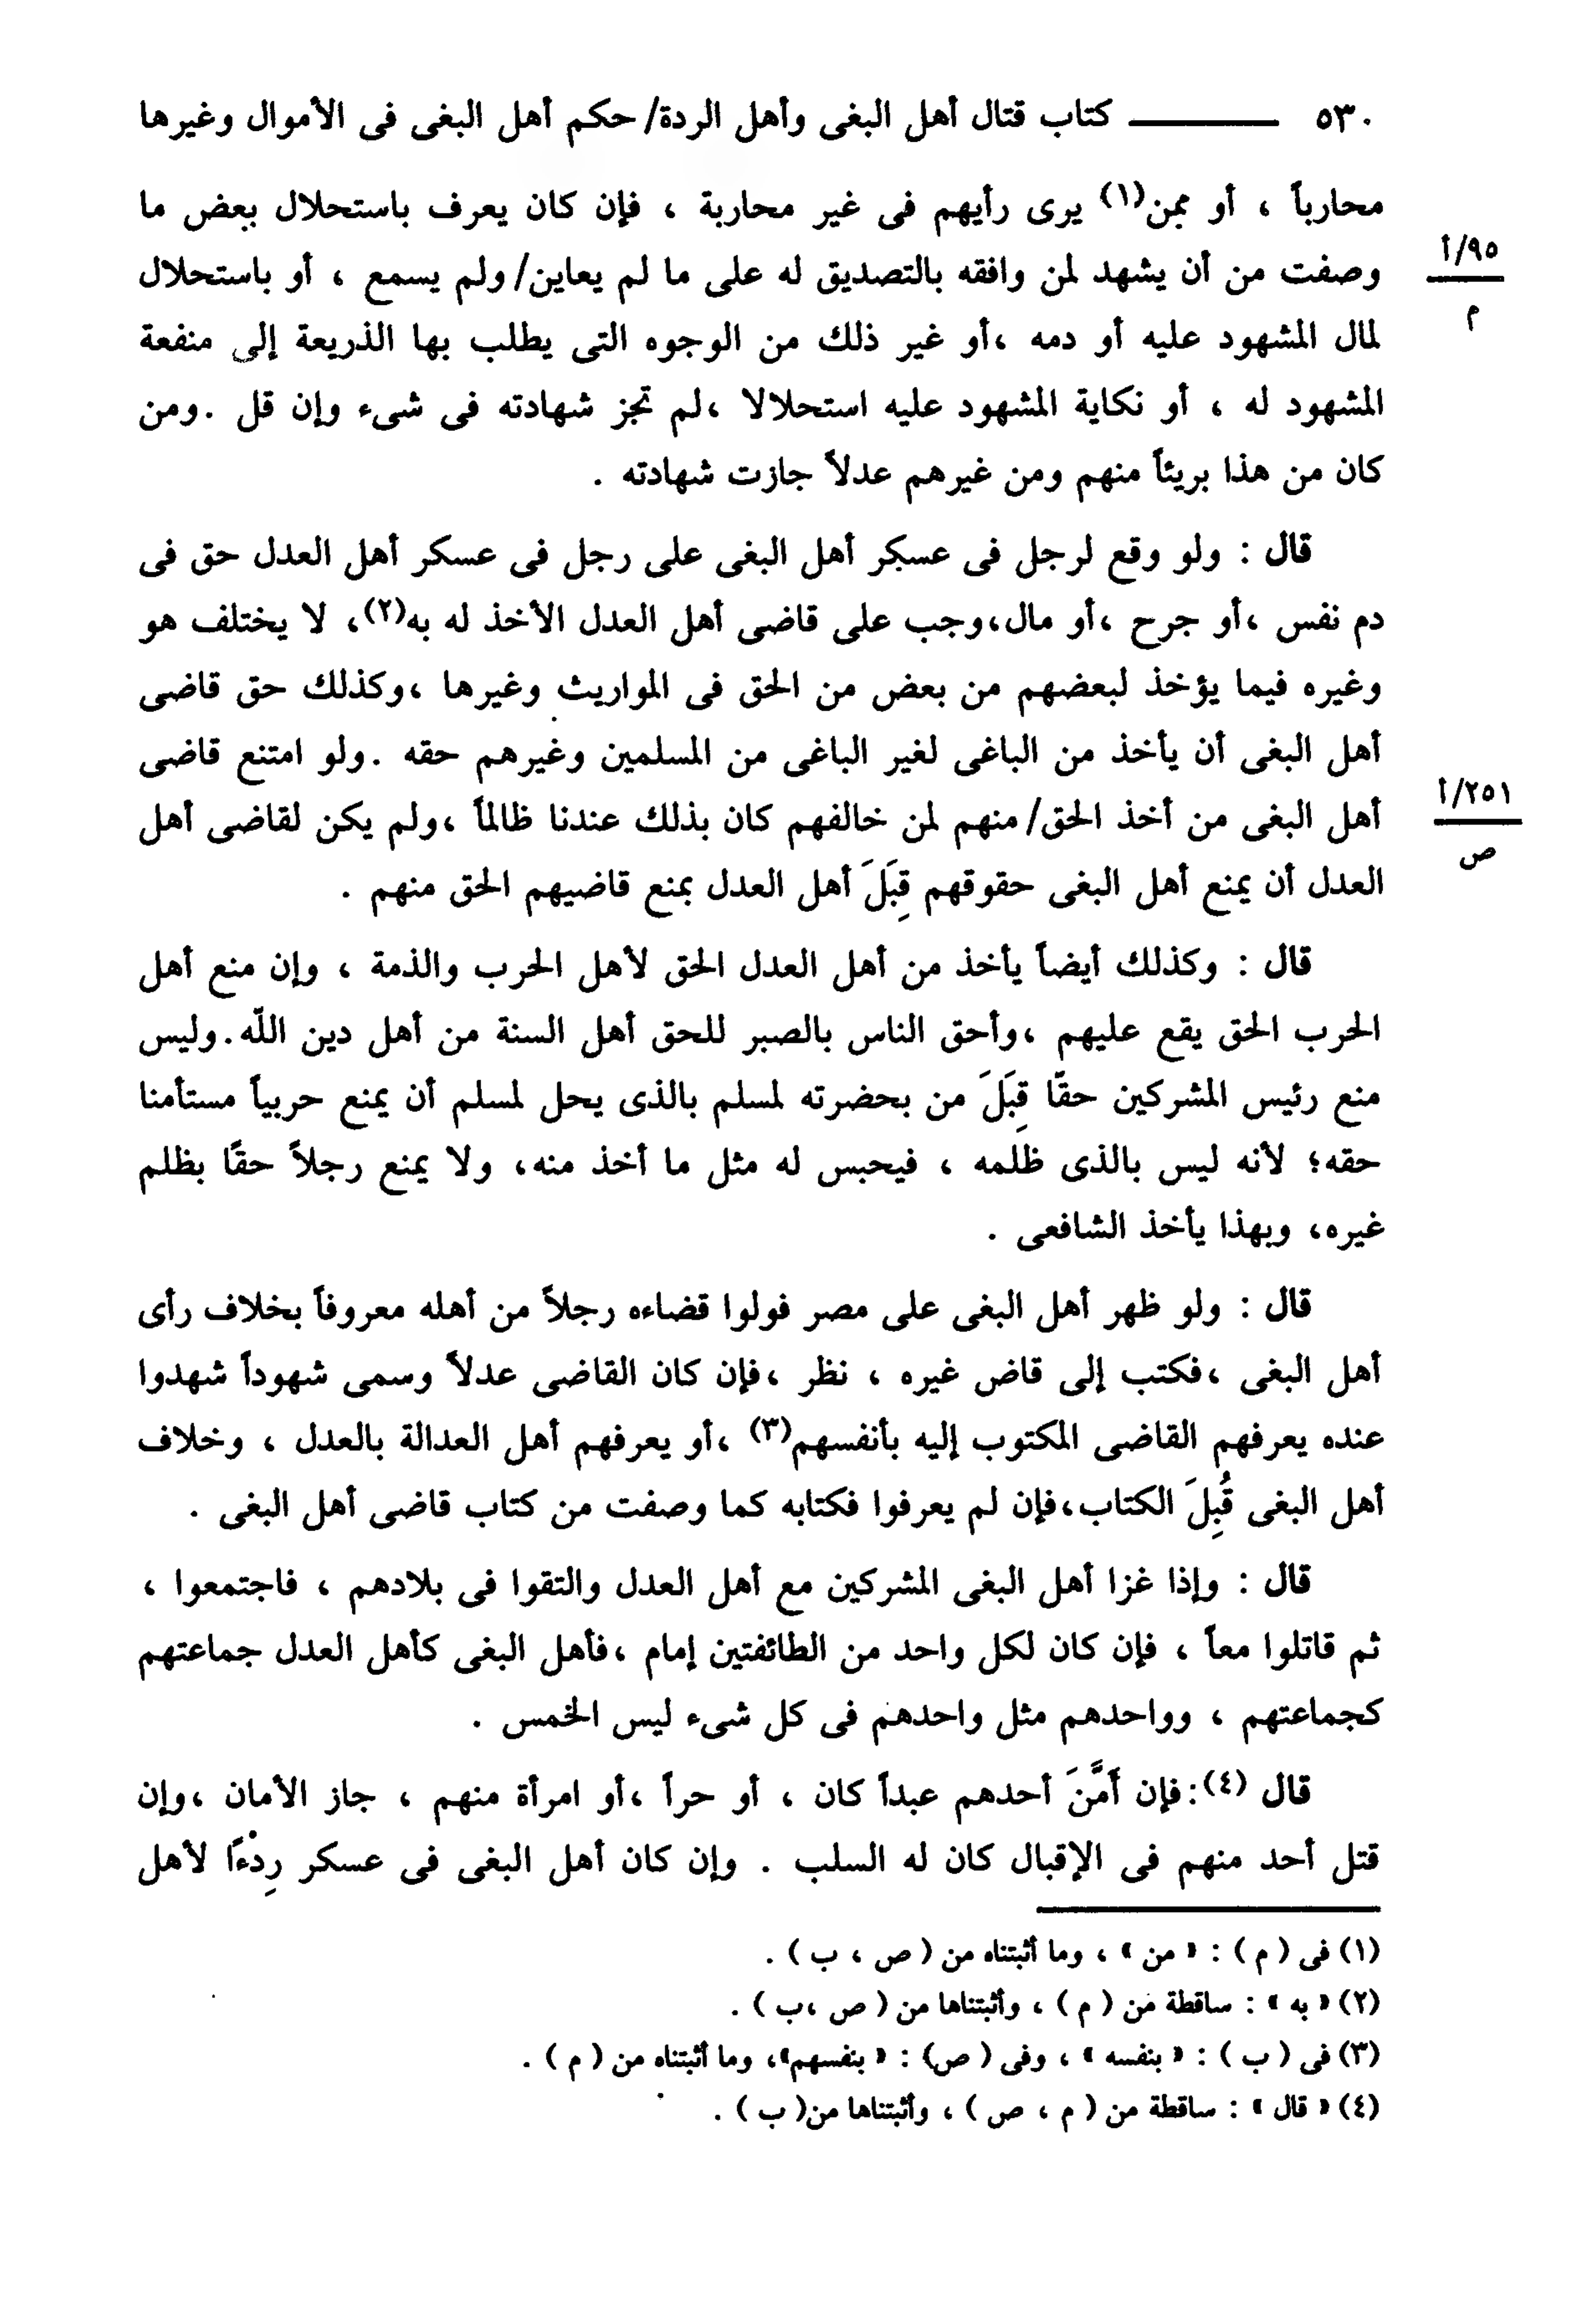 ٥٣٠ ــــــ كتاب قتال أهل البغى وأهل الردة/ حكم أهل البغى فى الأموال وغيرها
محارباً ، أو ممن(١) يرى رأيهم فى غير محاربة ، فإن كان يعرف باستحلال بعض ما
٩٥/أ
م
وصفت من أن يشهد لمن وافقه بالتصديق له على ما لم يعاين/ ولم يسمع ، أو باستحلال
لمال المشهود عليه أو دمه ،أو غير ذلك من الوجوه التى يطلب بها الذريعة إلى منفعة
المشهود له ، أو نكاية المشهود عليه استحلالا ،لم تجز شهادته فى شىء وإن قل .ومن
كان من هذا بريئاً منهم ومن غيرهم عدلاً جازت شهادته .
قال : ولو وقع لرجل فى عسكر أهل البغى على رجل فى عسكر أهل العدل حق فى
دم نفس ،أو جرح ،أو مال،وجب على قاضى أهل العدل الأخذ له به(٢)، لا يختلف هو
وغيره فيما يؤخذ لبعضهم من بعض من الحق فى المواريث وغيرها ،وكذلك حق قاضى
أهل البغى أن يأخذ من الباغى لغير الباغى من المسلمين وغيرهم حقه .ولو امتنع قاضى
٢٥١/أ
ص
أهل البغى من أخذ الحق/ منهم لمن خالفهم كان بذلك عندنا ظالماً ،ولم يكن لقاضى أهل
العدل أن يمنع أهل البغى حقوقهم قِبَلَ أهل العدل بمنع قاضيهم الحق منهم .
قال : وكذلك أيضاً يأخذ من أهل العدل الحق لأهل الحرب والذمة ، وإن منع أهل
الحرب الحق يقع عليهم ،وأحق الناس بالصبر للحق أهل السنة من أهل دين اللّه.وليس
منع رئيس المشركين حقّا قِبَلَ من بحضرته لمسلم بالذى يحل لمسلم أن يمنع حربياً مستأمنا
حقه؛ لأنه ليس بالذى ظلمه ، فيحبس له مثل ما أخذ منه، ولا يمنع رجلاً حقًا بظلم
غيره، وبهذا يأخذ الشافعى .
قال : ولو ظهر أهل البغى على مصر فولوا قضاءه رجلاً من أهله معروفاً بخلاف رأى
أهل البغى ،فكتب إلى قاض غيره ، نظر ،فإن كان القاضى عدلاً وسمى شهوداً شهدوا
عنده يعرفهم القاضى المكتوب إليه بأنفسهم(٣) ،أو يعرفهم أهل العدالة بالعدل ، وخلاف
أهل البغى قُبِلَ الكتاب،فإن لم يعرفوا فكتابه كما وصفت من كتاب قاضى أهل البغى .
قال : وإذا غزا أهل البغى المشركين مع أهل العدل والتقوا فى بلادهم ، فاجتمعوا ،
ثم قاتلوا معاً ، فإن كان لكل واحد من الطائفتين إمام ،فأهل البغى كأهل العدل جماعتهم
كجماعتهم ، وواحدهم مثل واحدهم فى كل شىء ليس الخمس .
قال (٤):فإن أَمَّنَ أحدهم عبداً كان ، أو حراً ،أو امرأة منهم ، جاز الأمان ،وإن
قتل أحد منهم فى الإقبال كان له السلب . وإن كان أهل البغى فى عسكر رِدْءًا لأهل
(١) فى ( م ) : « من » ، وما أثبتناه من ( ص ، ب ) .
(٢) « به » : ساقطة من ( م ) ، وأثبتناها من ( ص ،ب ) .
(٣) فى ( ب ) : « بنفسه » ، وفى ( ص) : « بنفسهم»، وما أثبتناه من ( م ) .
(٤) « قال » : ساقطة من ( م ، ص ) ، وأثبتناها من( ب ) .